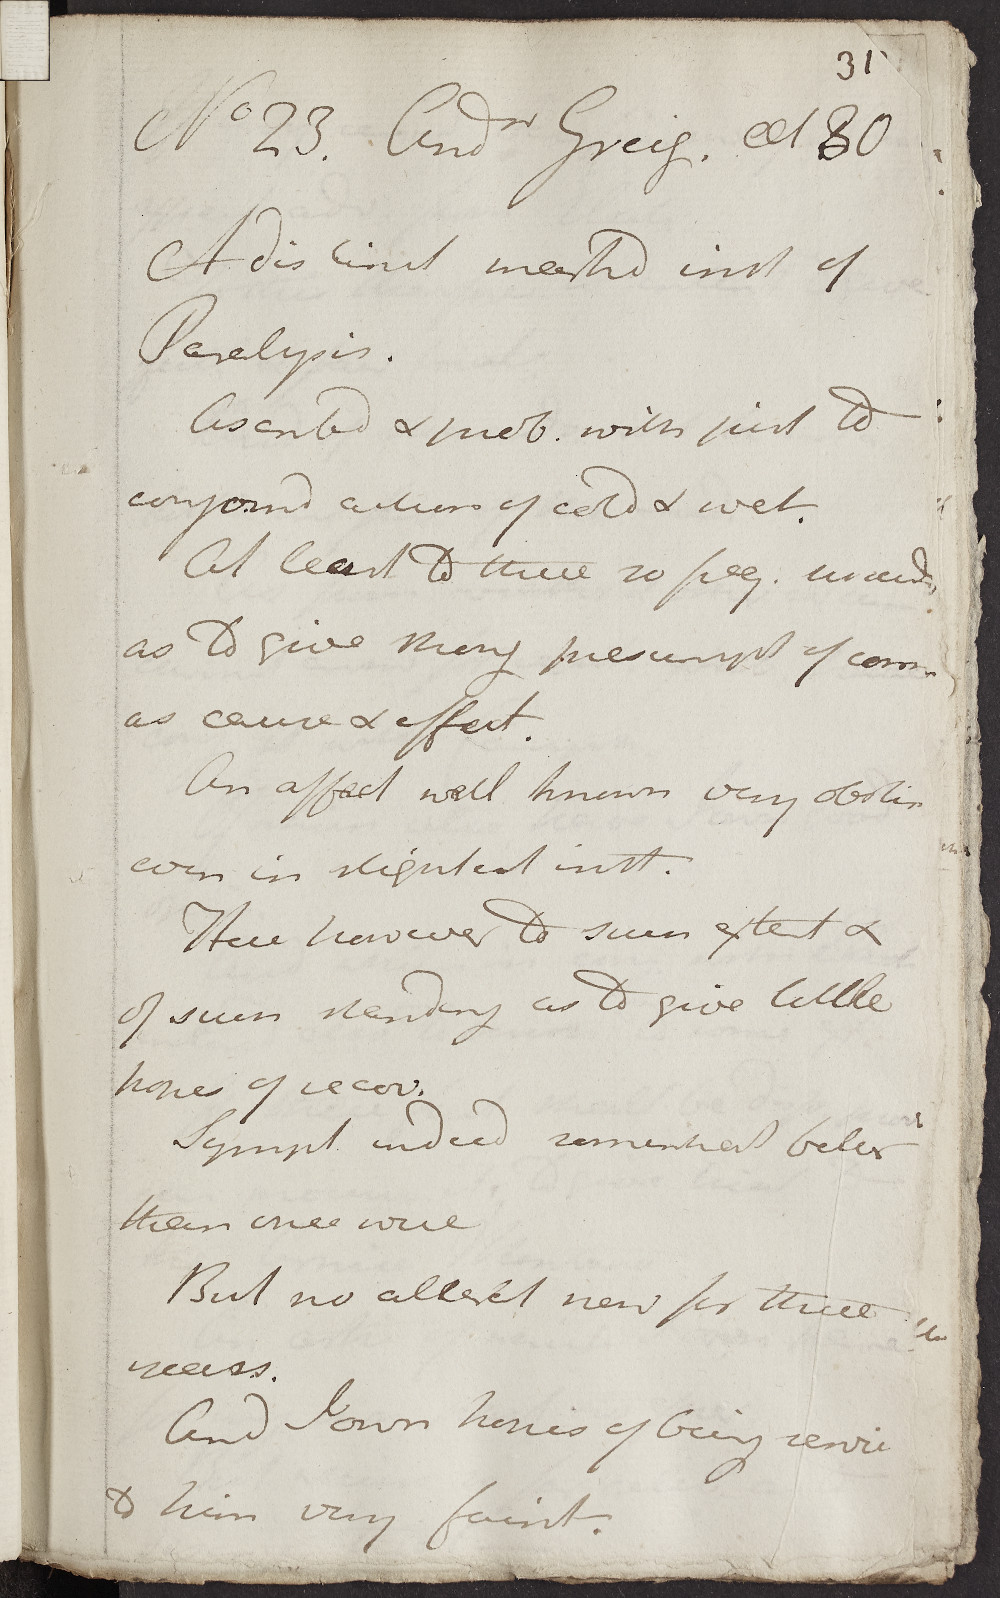 31
No 23. Andw Greig. aet 30
A distinct marked inst of
Paralysis.
Ascribed & prob. with just to
conjoind action of cold & wet.
At least to these so freq.
as to give strong presumpt of conn
as cause & effect.
An affect well known very obstin
even in slightest inst.
Here however to such extent &
of such standing as to give little
hopes of recov.
Sympt. indeed somewhat better
than once were
But no alterat now for three
years.
And I own hopes of being servic
to him very faint.